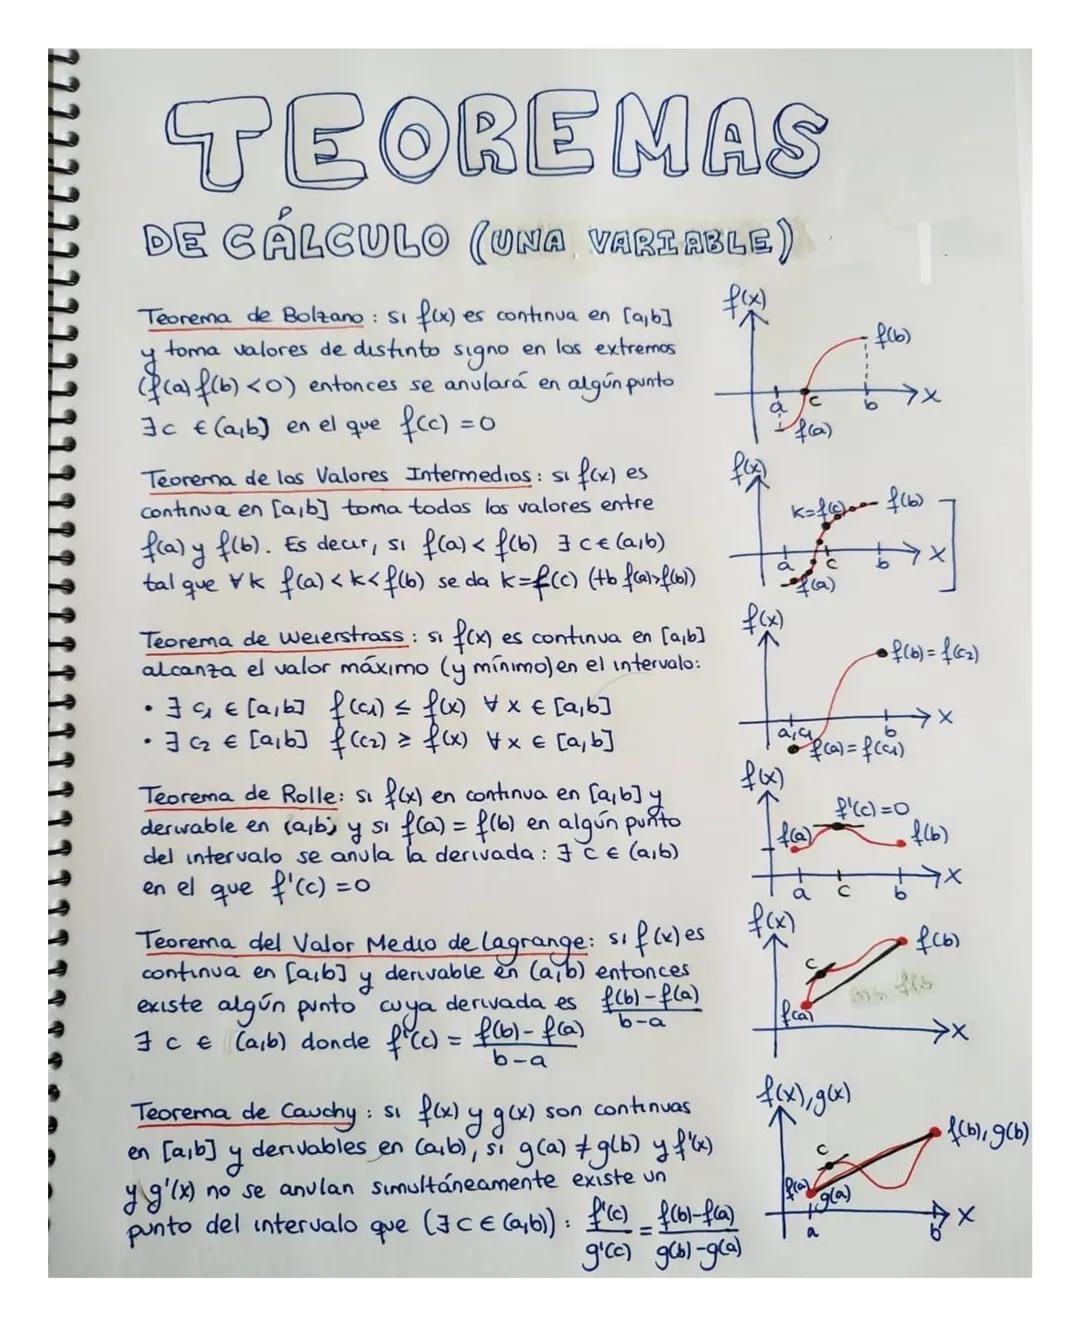 TEOREMAS
DE CÁLCULO (UNA VARIABLE)
Teorema de Bolzano: si f(x) es continua en [a,b]
y toma valores de distinto signo en los extremos
(f(a) f(b) <0) entonces se anulará en algún punto
∃c ∈ (a,b] en el que f(c) = 0
f(x)
f(b)
a c b x
f(a)
Teorema de los Valores Intermedios: si f(x) es
continua en [a,b] toma todos los valores entre
f(a) y f(b). Es decir, si f(a) < f(b) ∃ c ∈ (a,b)
tal que ∀k f(a) < k < f(b) se da k=f(c) (tb f(a)>f(b))
f(x)
k=f(c) f(b)
a c b x
f(a)
Teorema de Weierstrass: si f(x) es continua en [a,b]
alcanza el valor máximo (y mínimo) en el intervalo:
• ∃ c1 ∈ [a,b] f(c1) ≤ f(x) ∀ x ∈ [a,b]
• ∃ c2 ∈ [a,b] f(c2) ≥ f(x) ∀ x ∈ [a,b]
f(x)
f(b) = f(c2)
a,c1 b x
f(a) = f(c1)
Teorema de Rolle: si f(x) en continua en [a,b] y
derivable en (a,b) y si f(a) = f(b) en algún punto
del intervalo se anula la derivada: ∃ c ∈ (a,b)
en el que f'(c) = 0
f(x)
f'(c) = 0
f(a) f(b)
a c b x
Teorema del Valor Medio de Lagrange: si f(x) es
continua en [a,b] y derivable en (a,b) entonces
existe algún punto cuya derivada es f(b)-f(a)
b-a
∃ c ∈ (a,b) donde f'(c) = f(b)-f(a)
b-a
f(x)
f(b)
c
f(a)
x
Teorema de Cauchy: si f(x) y g(x) son continuas
en [a,b] y derivables en (a,b), si g(a) ≠ g(b) y f'(x)
y g'(x) no se anulan simultáneamente existe un
punto del intervalo que (∃ c ∈ (a,b)): f'(c) = f(b)-f(a)
g'(c) g(b)-g(a)
f(x), g(x)
f(b), g(b)
c
f(a) g(a)
a b x